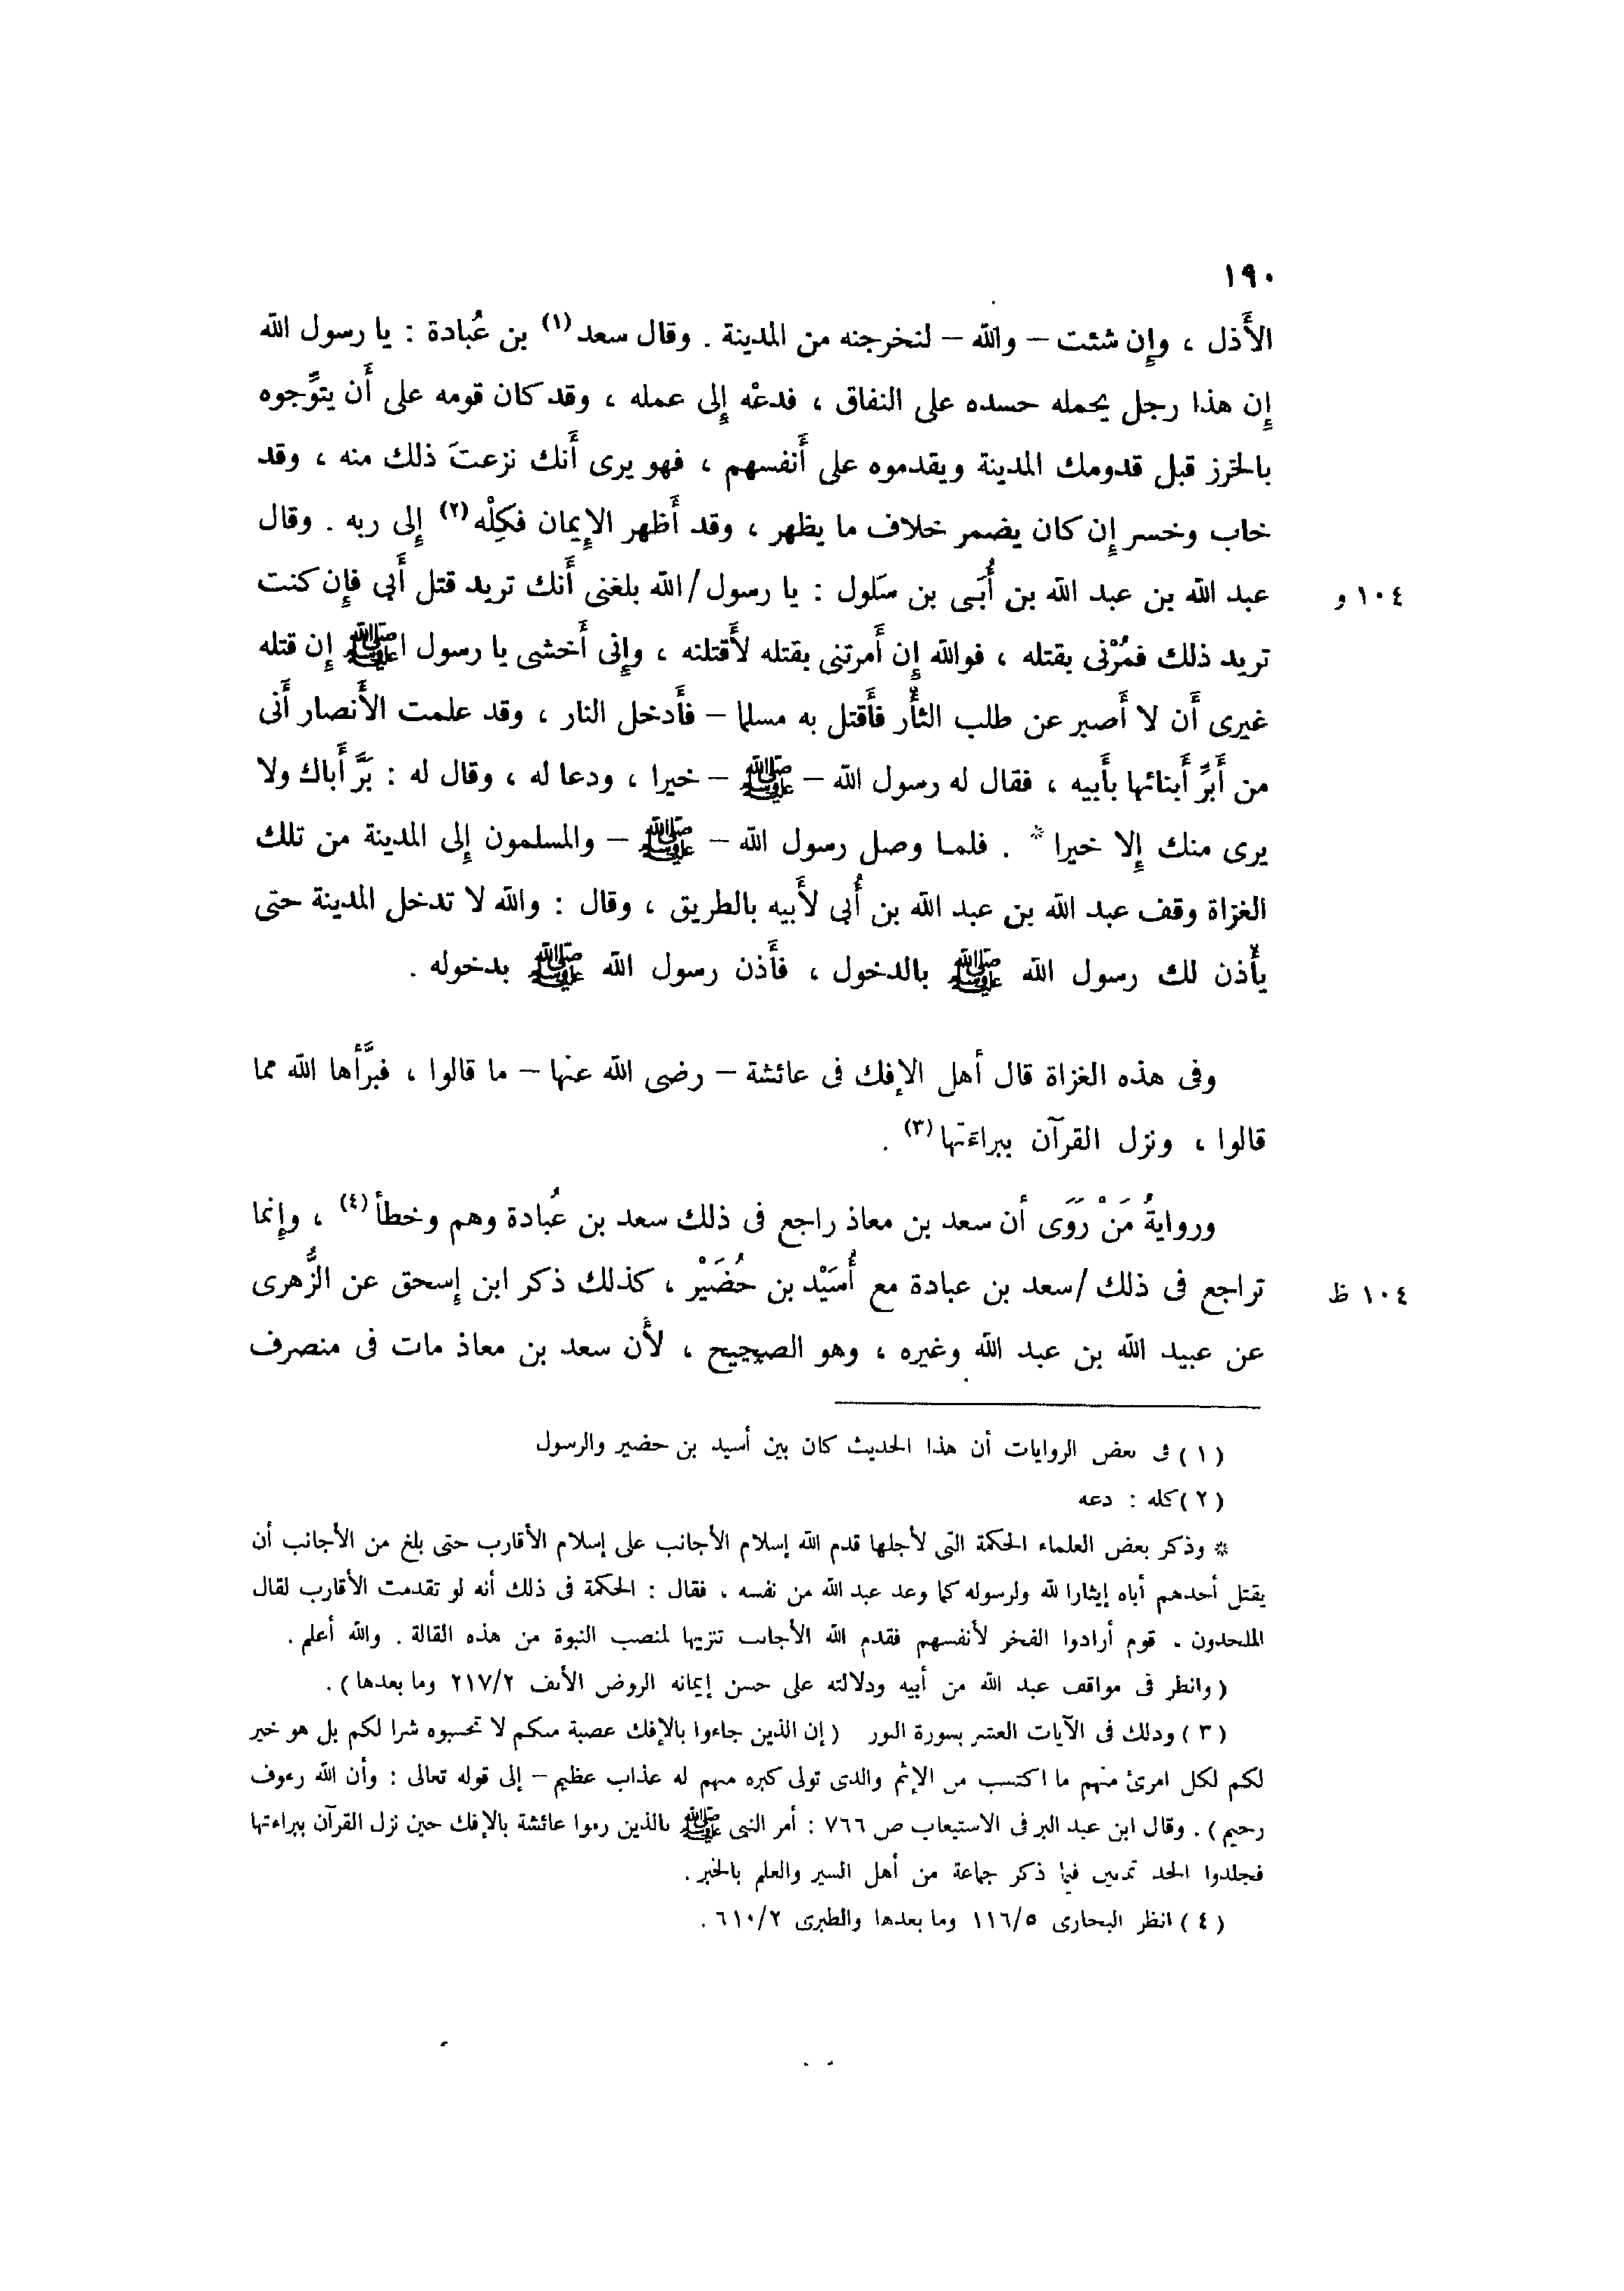 ١٩٠
الأَذل ، وإِن شئت – والله – لنخرجنه من المدينة . وقال سعد (١) بن عُبادة : يا رسول الله
إِن هذا رجل يحمله حسده على النفاق ، فدعْه إِلى عمله ، وقد كان قومه على أَن يتوِّجوه
بالخرز قبل قدومك المدينة ويقدموه على أَنفسهم ، فهو يرى أَنك نزعتَ ذلك منه ، وقد
خاب وخسر إِن كان يضمر خلاف ما يظهر ، وقد أَظهر الإِيمان فكِلْه (٢) إِلى ربه . وقال
عبد الله بن عبد الله بن أُبَى بن سَلول : يا رسول / الله بلغنى أَنك تريد قتل أَبى فإِن كنت ١٠٤ و
تريد ذلك فمُرْنى بقتله ، فوالله إِن أَمرتنى بقتله لأَقتلنه ، وإِنى أَخشى يا رسول ا ﷺ إِن قتله
غيرى أَن لا أَصبر عن طلب الثأْر فأَقتل به مسلما – فأَدخل النار ، وقد علمت الأَنصار أَنى
من أَبرِّ أَبنائها بأَبيه ، فقال له رسول الله – ﷺ – خيرا ، ودعا له ، وقال له : بَرَّ أَباك ولا
يرى منك إِلا خيرا * . فلما وصل رسول الله – ﷺ – والمسلمون إِلى المدينة من تلك
الغزاة وقف عبد الله بن عبد الله بن أُبى لأَبيه بالطريق ، وقال : والله لا تدخل المدينة حتى
يأْذن لك رسول الله ﷺ بالدخول ، فأَذن رسول الله ﷺ بدخوله .
وفى هذه الغزاة قال أهل الإفك فى عائشة – رضى الله عنها – ما قالوا ، فبرَّأها الله مما
قالوا ، ونزل القرآن ببراءتها (٣) .
وروايةُ مَنْ رَوَى أن سعد بن معاذ راجع فى ذلك سعد بن عُبادة وهم وخطأ (٤) ، وإِنما
تراجع فى ذلك / سعد بن عبادة مع أُسَيْد بن حُضَيْر ، كذلك ذكر ابن إِسحق عن الزُّهرى ١٠٤ ظ
عن عبيد الله بن عبد الله وغيره ، وهو الصحيح ، لأَن سعد بن معاذ مات فى منصرف
( ١ ) فى بعض الروايات أن هذا الحديث كان بين أسيد بن حضير والرسول
( ٢ ) كله : دعه
* وذكر بعض العلماء الحكمة التى لأجلها قدم الله إسلام الأجانب على إسلام الأقارب حتى بلغ من الأجانب أن
يقتل أحدهم أباه إيثارا لله ولرسوله كما وعد عبد الله من نفسه ، فقال : الحكمة فى ذلك أنه لو تقدمت الأقارب لقال
الملحدون . قوم أرادوا الفخر لأنفسهم فقدم الله الأجانب تنزيها لمنصب النبوة من هذه القالة . والله أعلم .
( وانظر فى مواقف عبد الله من أبيه ودلالته على حسن إيمانه الروض الأنف ٢١٧/٢ وما بعدها ) .
( ٣ ) وذلك فى الآيات العشر بسورة النور ( إن الذين جاءوا بالإفك عصبة منكم لا تحسبوه شرا لكم بل هو خير
لكم لكل امرئ منهم ما اكتسب من الإثم والذى تولى كبره منهم له عذاب عظيم – إلى قوله تعالى : وأن الله رءوف
رحيم ) . وقال ابن عبد البر فى الاستيعاب ص ٧٦٦ : أمر النبى ﷺ بالذين رموا عائشة بالإفك حين نزل القرآن ببراءتها
فجلدوا الحد ثمانين فيما ذكر جماعة من أهل السير والعلم بالخبر .
( ٤ ) انظر البخارى ١١٦/٥ وما بعدها والطبرى ٦١٠/٢ .